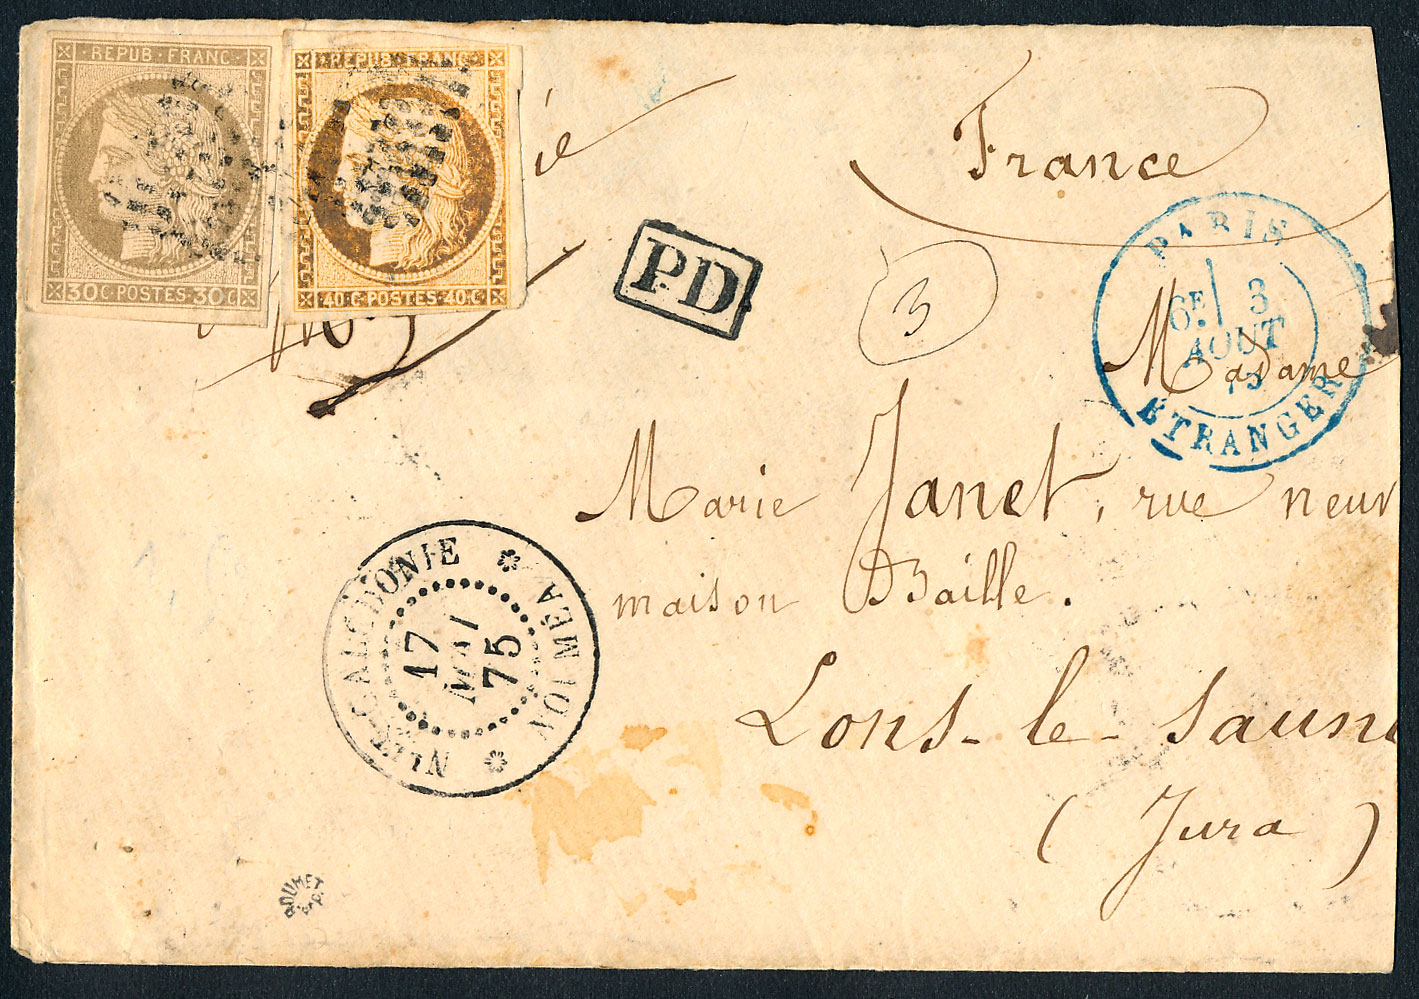 REPUB · FRANC ·
30 C POSTES 30 C
REPUB · FRANC ·
40 C POSTES 40 C
France
P.D
3
PARIS
6E 3
AOUT
75
ETRANGER
Madame
Marie Janet, rue neuv
maison Baille.
Lons-le-Sauni
(Jura)
NLLE-CALÉDONIE
17
MAI
75
NOUMÉA
ROUMET